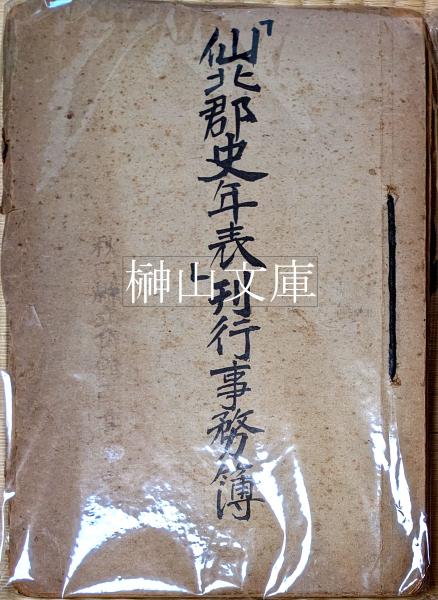 「仙北郡史年表」刊行事務簿
榊山文庫